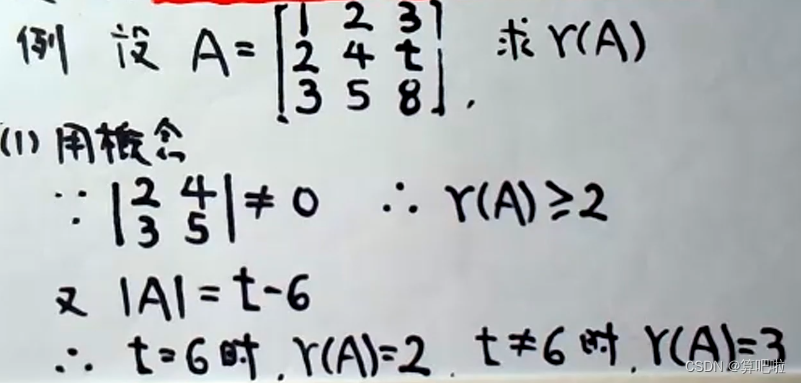 例 设 A=[1 2 3
2 4 t
3 5 8], 求 r(A)
(1) 用概念
∵ |2 4
3 5| ≠ 0 ∴ r(A)≥2
又 |A|=t-6
∴ t=6时, r(A)=2, t≠6时, r(A)=3
CSDN @算吧啦